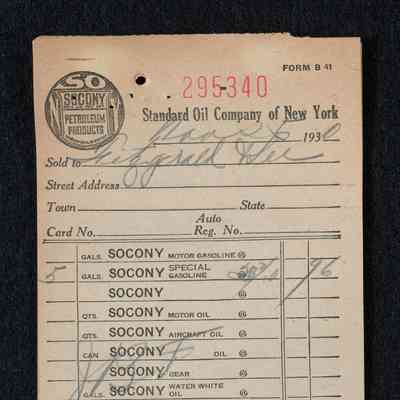 FORM B 41
295340
SO
SOCONY
PETROLEUM
PRODUCTS
Standard Oil Company of New York
1930
Sold to Fitzgerald
Street Address
Town State
Auto
Card No. Reg. No.
GALS. SOCONY MOTOR GASOLINE @
5 GALS. SOCONY SPECIAL GASOLINE @ 96
SOCONY @
QTS. SOCONY MOTOR OIL @
QTS. SOCONY AIRCRAFT OIL @
CAN SOCONY OIL @
SOCONY GEAR @
GALS. SOCONY WATER WHITE OIL @